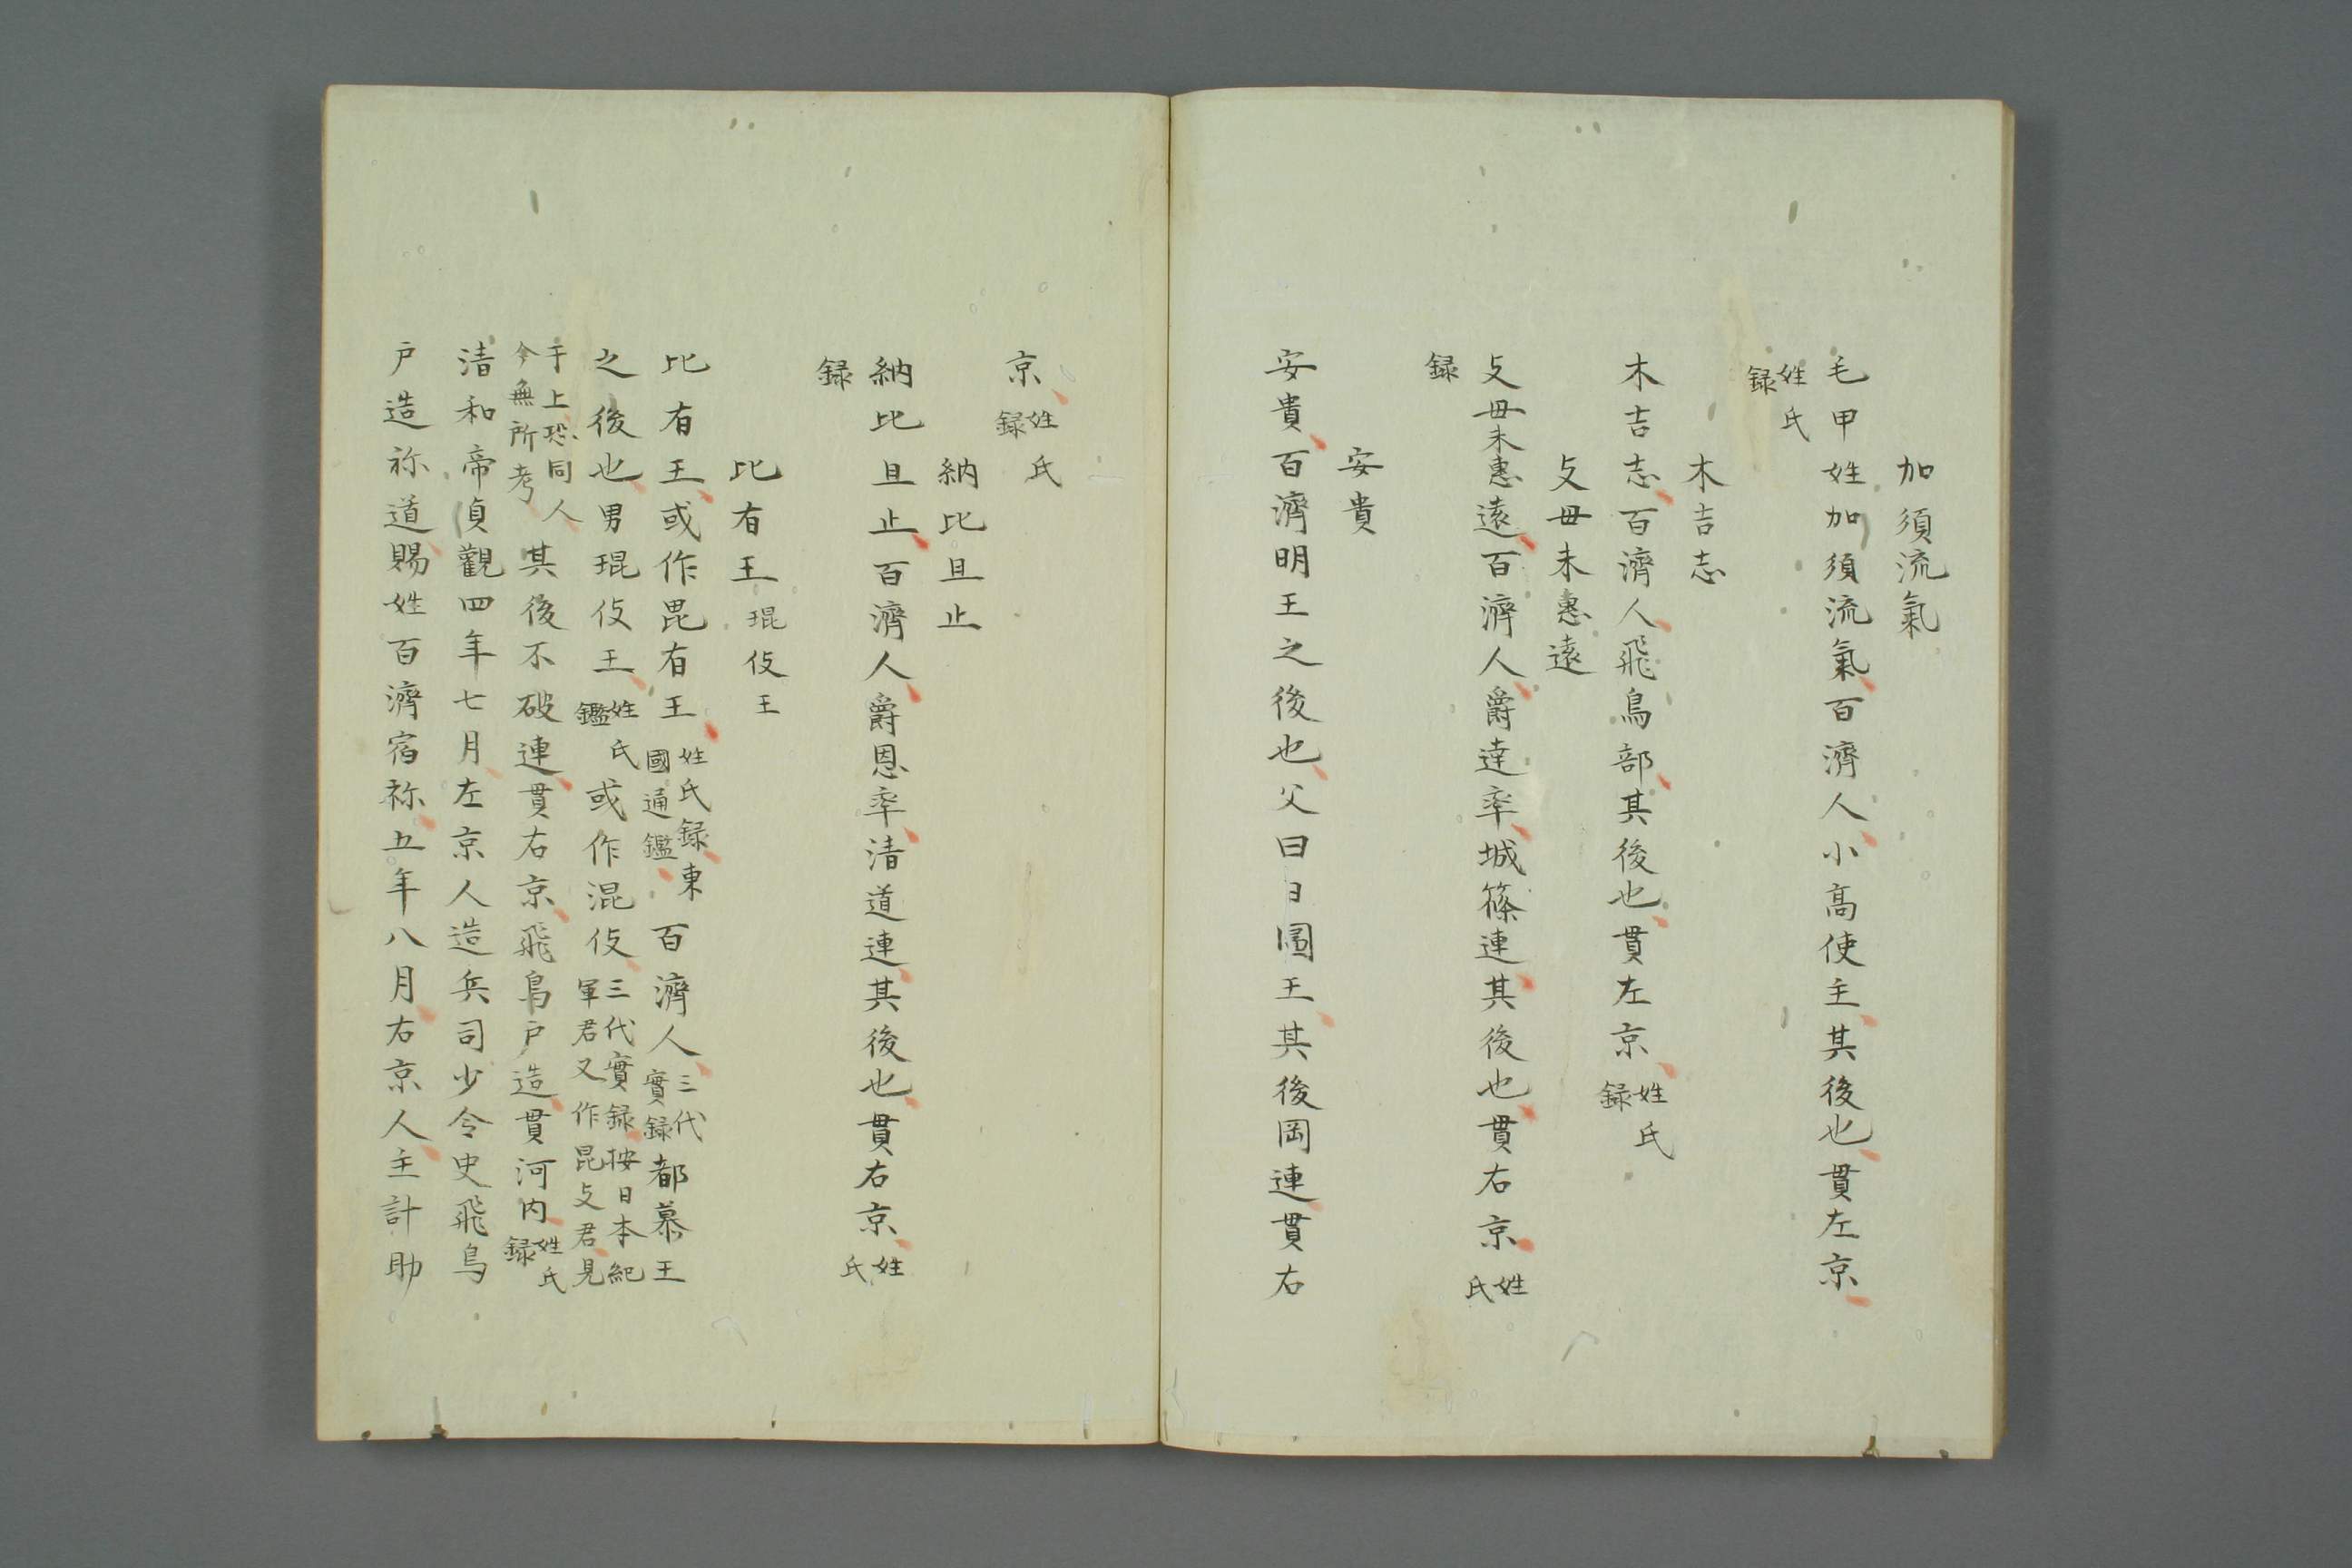 加須流氣
毛甲姓加須流氣百濟人小高使主其後也貫左京
姓氏
録
木吉志
木吉志百濟人飛鳥部其後也貫左京姓氏録
攴毋末惠遠
攴毋末惠遠百濟人爵達率城篠連其後也貫右京姓氏
録
安貴
安貴百濟明王之後也父曰日圖王其後岡連貫右
京姓氏録
納比且止
納比且止百濟人爵恩率清道連其後也貫右京姓氏
録
比有王 琨伎王
比有王或作毘有王姓氏録東國通鑑百濟人三代實録都慕王
之後也男琨伎王姓氏鑑或作混伎三代實録按日本紀軍君又作昆攴君見
于上恐同人今無所考其後不破連貫右京飛鳥戸造貫河内姓氏録
清和帝貞觀四年七月左京人造兵司少令史飛鳥
戸造祢道賜姓百濟宿祢五年八月右京人主計助